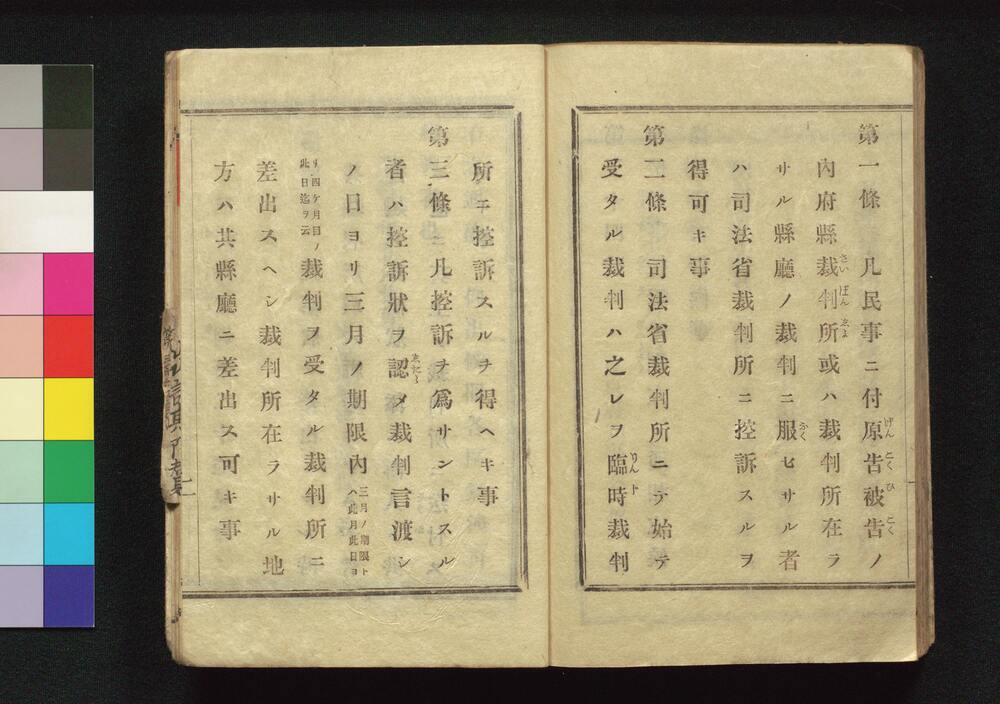 第一條 凡民事ニ付原告被告ノ
內府縣裁判所或ハ裁判所在ラ
サル縣廳ノ裁判ニ服セサル者
ハ司法省裁判所ニ控訴スルヲ
得可キ事
第二條 司法省裁判所ニテ始テ
受タル裁判ハ之レヲ臨時裁判
所ニ控訴スルヲ得ヘキ事
第三條 凡控訴ヲ爲サントスル
者ハ控訴狀ヲ認メ裁判言渡シ
ノ日ヨリ三月ノ期限內三月ノ期限トハ此月此日ヨ
リ四ケ月目ノ此日迄ヲ云裁判ヲ受タル裁判所ニ
差出スヘシ裁判所在ラサル地
方ハ其縣廳ニ差出ス可キ事